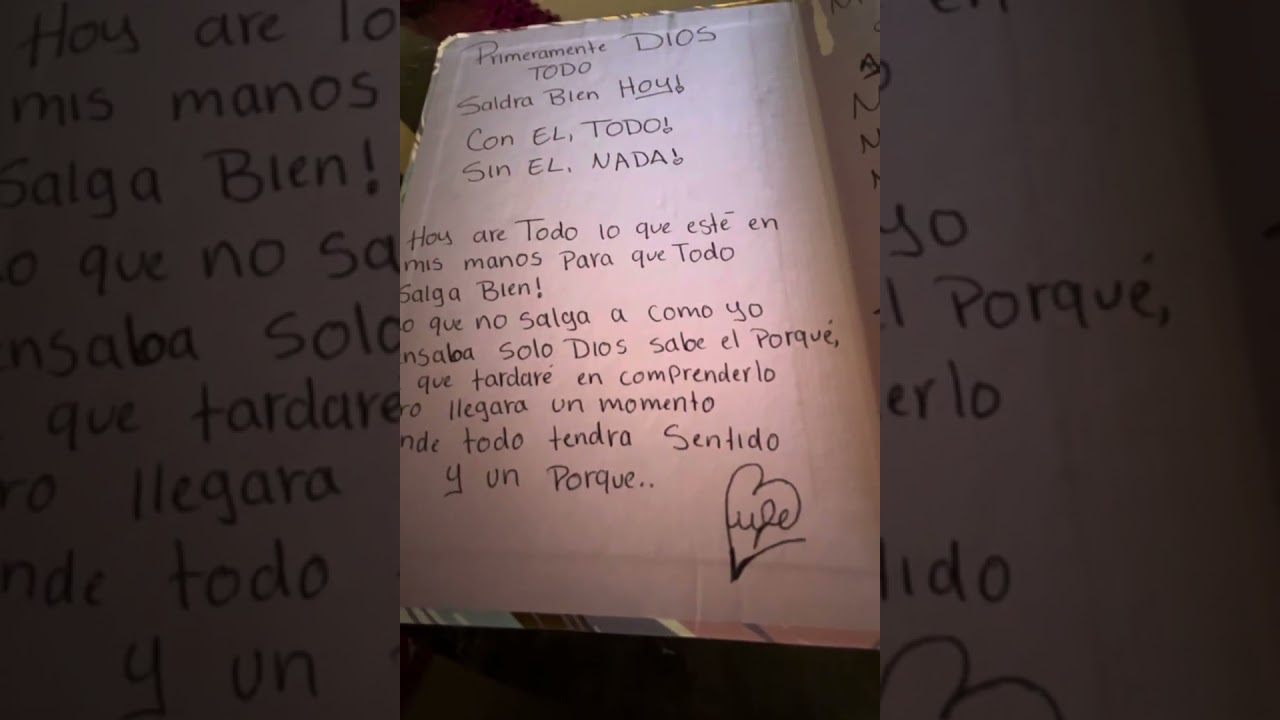 Primeramente DIOS
TODO
Saldra Bien Hoy!
Con EL, TODO!
Sin EL, NADA!
Hoy are Todo lo que esté en
mis manos Para que Todo
Salga Bien!
o que no salga a como yo
nsaba solo Dios sabe el Porqué,
que tardaré en comprenderlo
ro llegara un momento
nde todo tendra Sentido
y un Porque..
Lupe